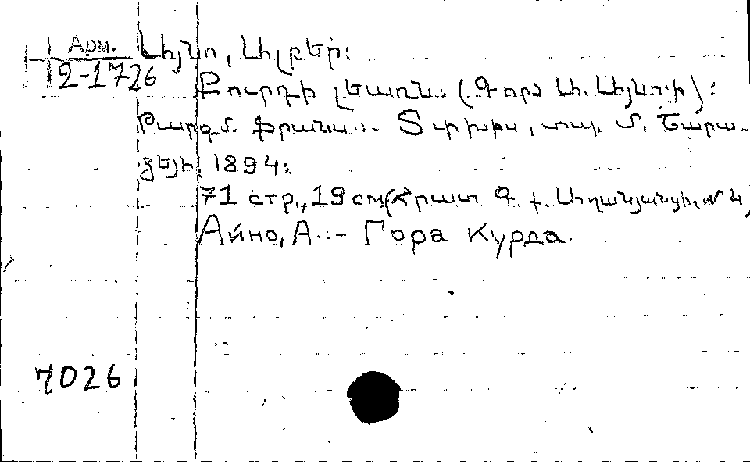 Арм. Այնո, Ալբեր։
2-1726
Քուրդի լեառն. (Գործ Ա. Այնոյի)։
Թարգմ. ֆրանս.. Տփխիս, տպ. Մ. Շարա-
ձեի, 1894։
71 стр., 19 см (Հրատ. Գ. Աղանյանցի, № 4)
Айно, А. - Гора Курда.
7026